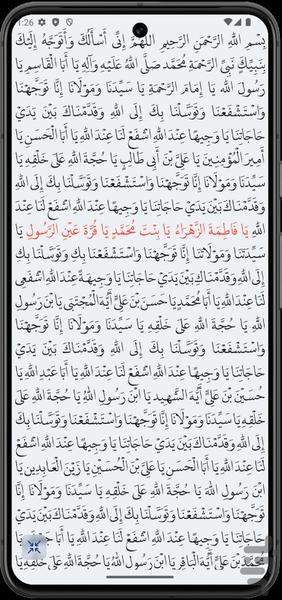 1:26
بِسْمِ اللهِ الرَّحْمنِ الرَّحيمِ اَللّهُمَّ اِنّي اَسْأَلُكَ وَاَتَوَجَّهُ اِلَيْكَ
بِنَبِيِّكَ نَبِيِّ الرَّحْمَةِ مُحَمَّدٍ صَلَّى اللهُ عَلَيْهِ وَآلِهِ يا اَبَا الْقاسِمِ يا
رَسُولَ اللهِ يا اِمامَ الرَّحْمَةِ يا سَيِّدَنا وَمَوْلانا اِنّا تَوَجَّهْنا
وَاسْتَشْفَعْنا وَتَوَسَّلْنا بِكَ اِلَى اللهِ وَقَدَّمْناكَ بَيْنَ يَدَيْ
حاجاتِنا يا وَجيهاً عِنْدَ اللهِ اِشْفَعْ لَنا عِنْدَ اللهِ يا اَبَا الْحَسَنِ يا
اَميرَ الْمُؤْمِنينَ يا عَلِيَّ بْنَ اَبي طالِبٍ يا حُجَّةَ اللهِ عَلى خَلْقِهِ يا
سَيِّدَنا وَمَوْلانا اِنّا تَوَجَّهْنا وَاسْتَشْفَعْنا وَتَوَسَّلْنا بِكَ اِلَى اللهِ
وَقَدَّمْناكَ بَيْنَ يَدَيْ حاجاتِنا يا وَجيهاً عِنْدَ اللهِ اِشْفَعْ لَنا عِنْدَ
اللهِ يا فاطِمَةَ الزَّهْراءُ يا بِنْتَ مُحَمَّدٍ يا قُرَّةَ عَيْنِ الرَّسُولِ يا
سَيِّدَتَنا وَمَوْلاتَنا اِنّا تَوَجَّهْنا وَاسْتَشْفَعْنا وَتَوَسَّلْنا بِكِ
اِلَى اللهِ وَقَدَّمْناكِ بَيْنَ يَدَيْ حاجاتِنا يا وَجيهَةً عِنْدَ اللهِ اِشْفَعي
لَنا عِنْدَ اللهِ يا اَبا مُحَمَّدٍ يا حَسَنَ بْنَ عَلِيٍّ اَيُّهَا الْمُجْتَبى يَا بْنَ رَسُولِ
اللهِ يا حُجَّةَ اللهِ عَلى خَلْقِهِ يا سَيِّدَنا وَمَوْلانا اِنّا تَوَجَّهْنا
وَاسْتَشْفَعْنا وَتَوَسَّلْنا بِكَ اِلَى اللهِ وَقَدَّمْناكَ بَيْنَ يَدَيْ
حاجاتِنا يا وَجيهاً عِنْدَ اللهِ اِشْفَعْ لَنا عِنْدَ اللهِ يا اَبا عَبْدِ اللهِ يا
حُسَيْنَ بْنَ عَلِيٍّ اَيُّهَا الشَّهيدُ يَا بْنَ رَسُولِ اللهِ يا حُجَّةَ اللهِ عَلى
خَلْقِهِ يا سَيِّدَنا وَمَوْلانا اِنّا تَوَجَّهْنا وَاسْتَشْفَعْنا وَتَوَسَّلْنا بِكَ
اِلَى اللهِ وَقَدَّمْناكَ بَيْنَ يَدَيْ حاجاتِنا يا وَجيهاً عِنْدَ اللهِ اِشْفَعْ
لَنا عِنْدَ اللهِ يا اَبَا الْحَسَنِ يا عَلِيَّ بْنَ الْحُسَيْنِ يا زَيْنَ الْعابِدينَ يَا
ابْنَ رَسُولِ اللهِ يا حُجَّةَ اللهِ عَلى خَلْقِهِ يا سَيِّدَنا وَمَوْلانا اِنّا
تَوَجَّهْنا وَاسْتَشْفَعْنا وَتَوَسَّلْنا بِكَ اِلَى اللهِ وَقَدَّمْناكَ بَيْنَ يَدَيْ
حاجاتِنا يا وَجيهاً عِنْدَ اللهِ اِشْفَعْ لَنا عِنْدَ اللهِ يا اَبا جَعْفَرٍ يا
مُحَمَّدَ بْنَ عَلِيٍّ اَيُّهَا الْباقِرُ يَا بْنَ رَسُولِ اللهِ يا حُجَّةَ اللهِ عَلى خَلْقِهِ يا